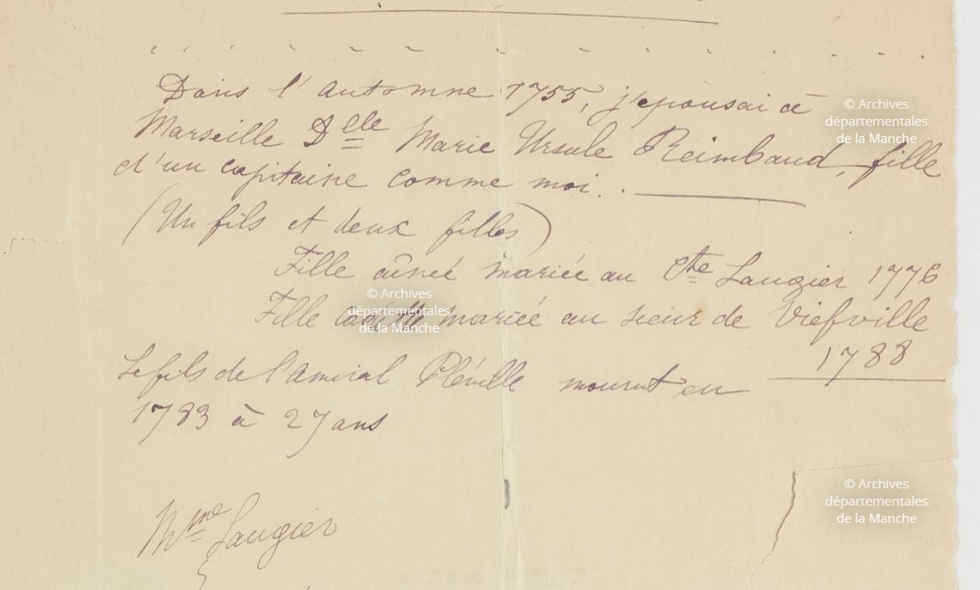 Dans l'automne 1755, j'epousai à
Marseille Dlle Marie Ursule Reimbaud, fille
d'un capitaine comme moi.
(Un fils et deux filles)
Fille aînée mariée au Cte Laugier 1776
Fille mariée au sieur de Viefville
1788
Le fils de l'amiral Pléville mourut en
1783 à 27 ans
Mme Laugier
© Archives
départementales
de la Manche
© Archives
départementales
de la Manche
© Archives
départementales
de la Manche